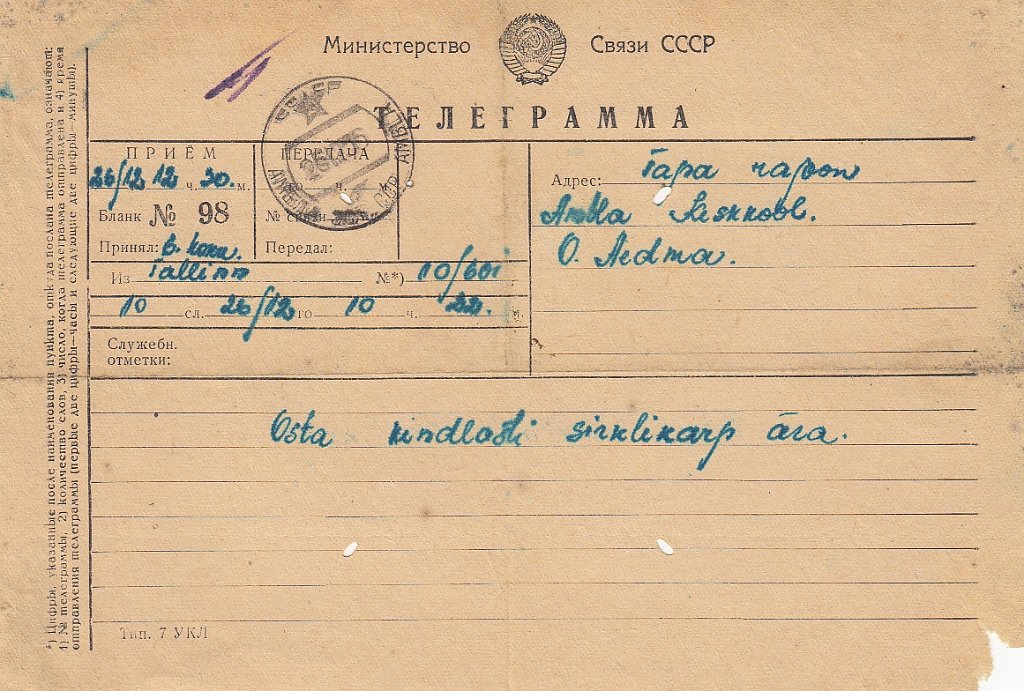 Министерство Связи СССР
ТЕЛЕГРАММА
ПРИЁМ
26/12 12 ч. 30. м.
Бланк № 98
Принял:
ПЕРЕДАЧА
го ч. м.
№ связи
Передал:
Адрес: Тара район
Ambla Keskkool.
O. Aedma.
Из Tallinn №*) 10/601
10 сл. 26/12 го 10 ч. 22. м.
Служебн.
отметки:
Osta kindlasti sirklikarp ära.
Тип. 7 УКЛ
*) Цифры, указанные после наименования пункта, откуда послана телеграмма, означают:
1) № телеграммы, 2) количество слов, 3) число, когда телеграмма отправлена и 4) время
отправления телеграммы (первые две цифры—часы и следующие две цифры—минуты).